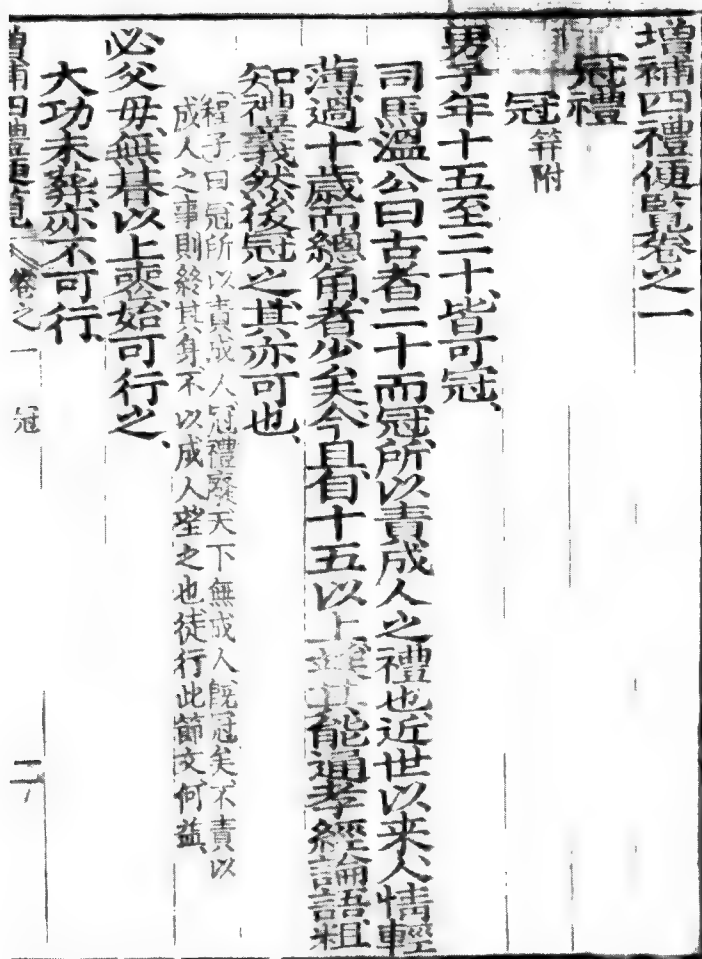 增補四禮便覽卷之一
冠禮
冠 筓附
男子年十五至二十、皆可冠、
司馬溫公曰古者二十而冠、所以責成人之禮也、近世以来、人情輕
薄、過十歲而總角者少矣、今且自十五以上、俟其能通孝經論語、粗
知禮義、然後冠之、其亦可也、
程子曰冠所以責成人、冠禮廢、天下無成人、旣冠矣、不責以
成人之事、則終其身不以成人望之也、徒行此節文何益、
必父母、無朞以上喪、始可行之、
大功未葬、亦不可行、
增補四禮便覽 卷之一 冠 二